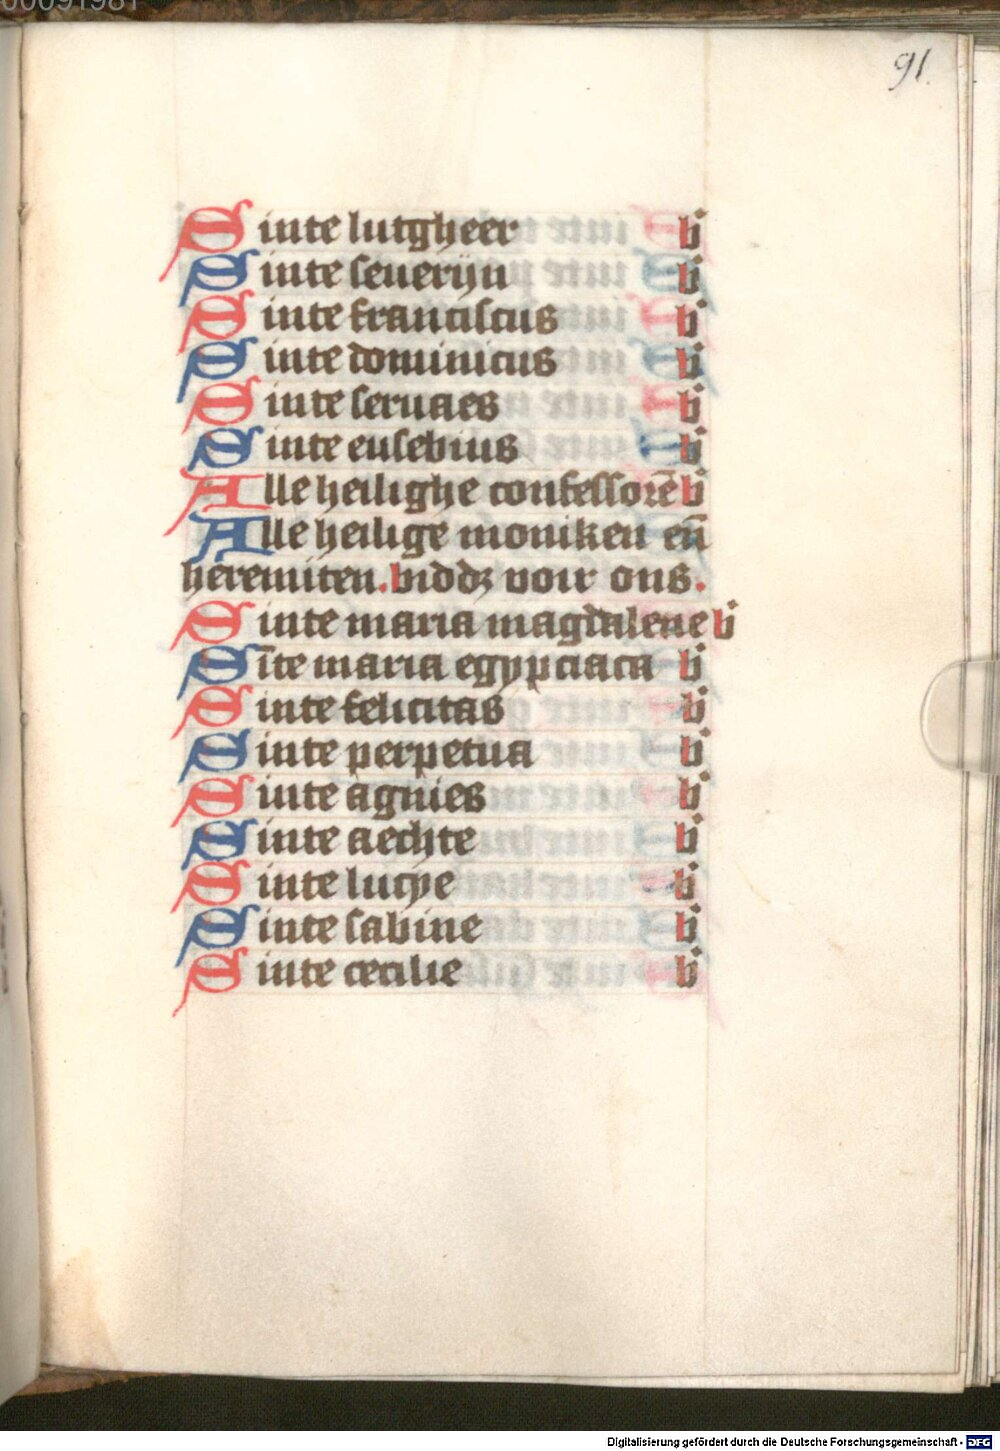 00091981
91.
Sinte lutgheer b
Sinte seuerijn b
Sinte franciscus b
Sinte dominicus b
Sinte seruaes b
Sinte eusebius b
Alle heilighe confessorē b
Alle heilige moniken en̄
heremiten. biddꝫ voir ons.
Sinte maria magdalene b
Sīte maria egypciaca b
Sinte felicitas b
Sinte perpetua b
Sinte agnies b
Sinte aechte b
Sinte lucye b
Sinte sabine b
Sinte cecilie b
Digitalisierung gefördert durch die Deutsche Forschungsgemeinschaft - DFG